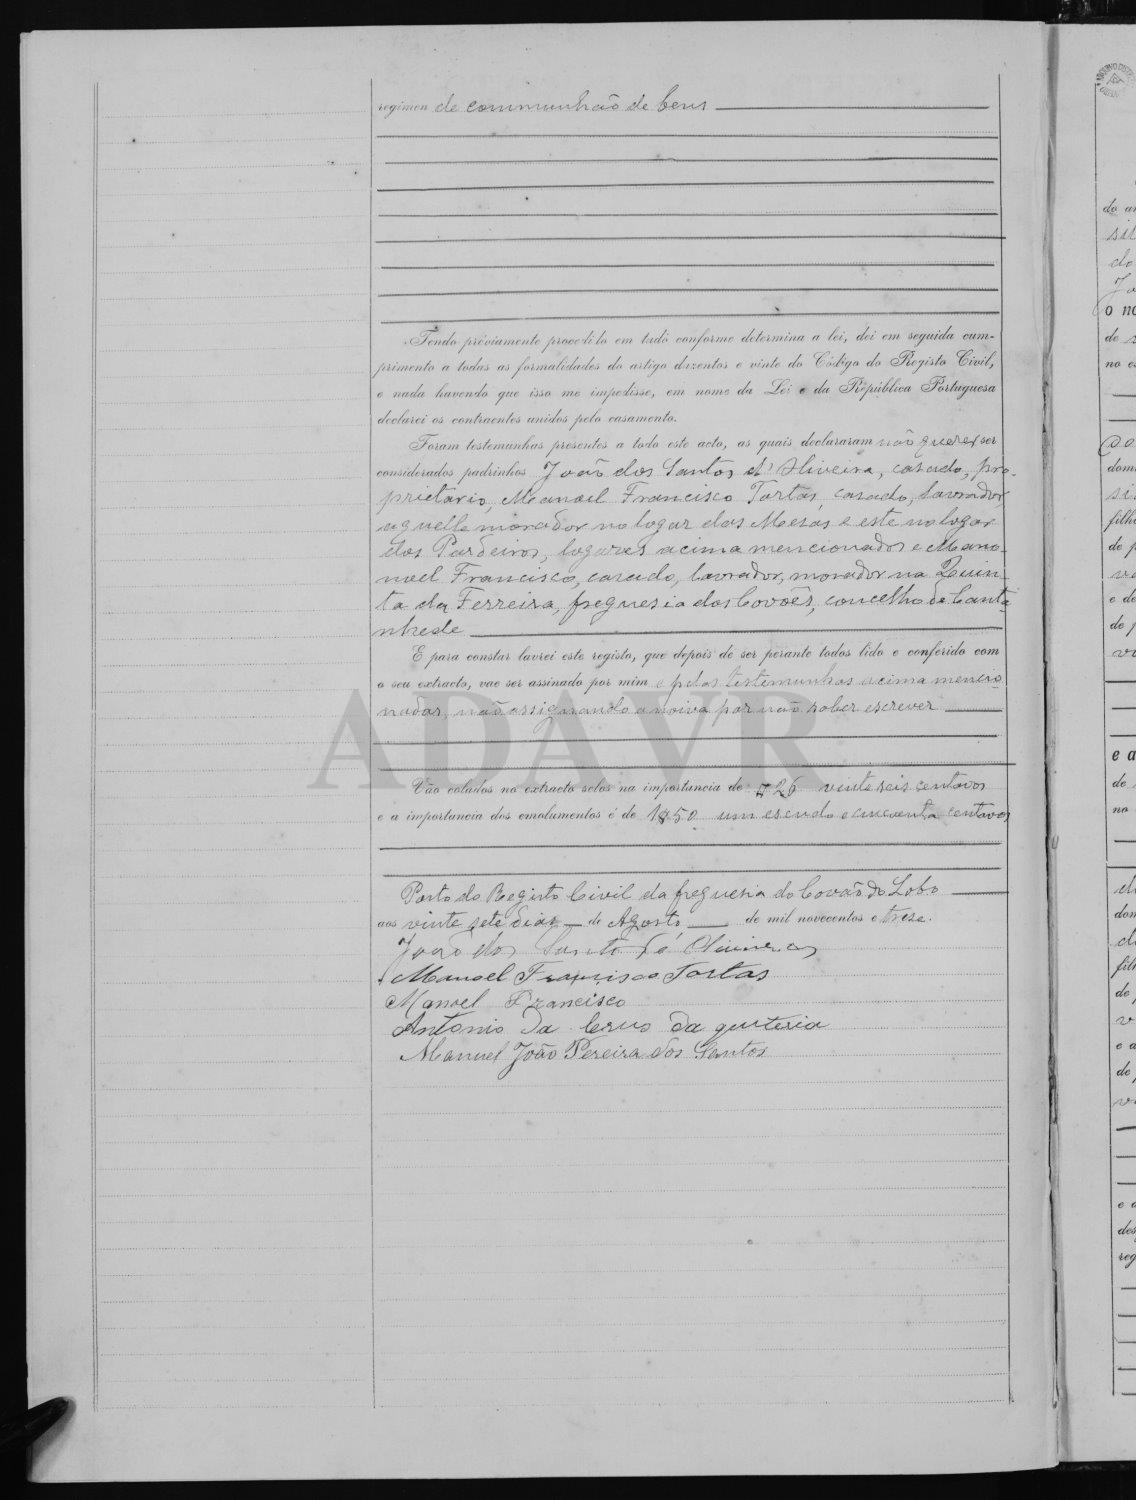 regimen de communhão de bens
Tendo préviamente procedido em tudo conforme determina a lei, dei em seguida cum-
primento a todas as formalidades do artigo duzentos e vinte do Código do Registo Civil,
e nada havendo que isso me impedisse, em nome da Lei e da Rèpública Portuguesa
declarei os contraentes unidos pelo casamento.
Foram testemunhas presentes a todo este acto, as quais declararam não querer ser
considerados padrinhos João dos Santos d'Oliveira, casado, pro-
prietario, Manoel Francisco Tortas, casado, lavrador,
aquelle morador no logar das Mesas e este no logar
dos Pardeiros, logares acima mencionados e Mano-
noel Francisco, casado, lavrador, morador na Quin-
ta da Ferreira, freguesia dos Covões, concelho de Canta-
nhede
E para constar lavrei este registo, que depois de ser perante todos lido e conferido com
o seu extracto, vae ser assinado por mim e pelas testemunhas acima mencio-
nadas, não assignando a noiva por não saber escrever
Vão colados no extracto selos na importancia de $26 vinte seis centavos
e a importancia dos emolumentos é de 1$50 um escudo e cincoenta centavos
Posto do Registo Civil da freguesia do Covão do Lobo
aos vinte sete dias de Agosto de mil novecentos e trese.
João dos Santos d'Oliveira
Manoel Francisco Tortas
Manoel Francisco
Antonio da Crus da quiteria
Manuel João Pereira dos Santos
ADAVR